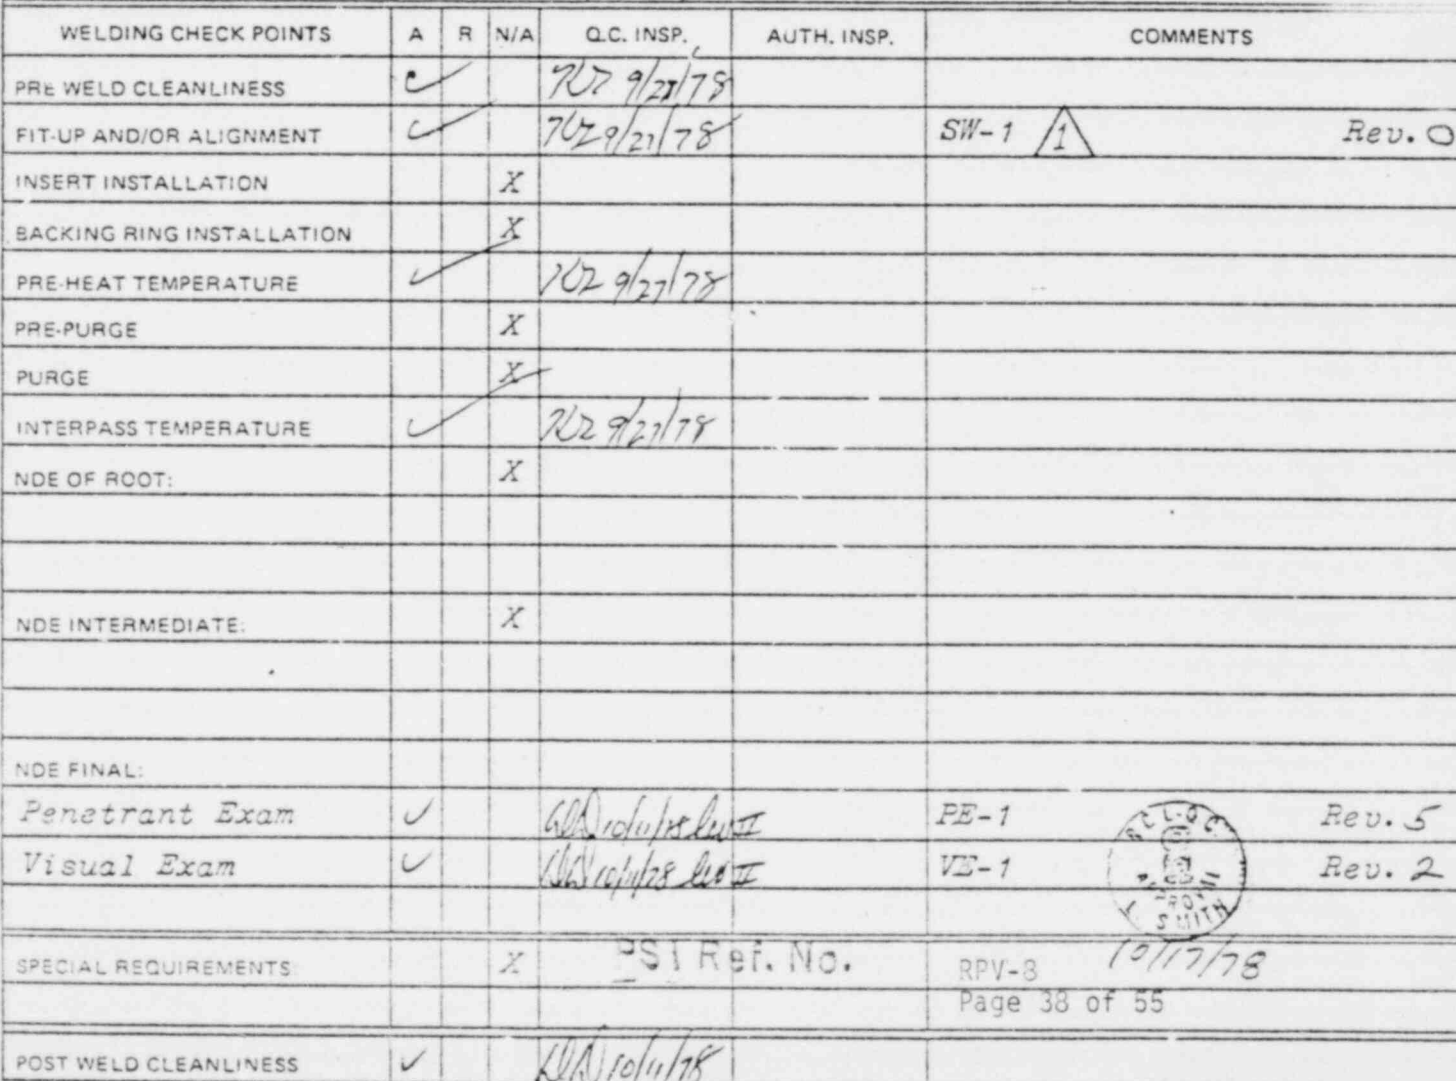 WELDING CHECK POINTS A R N/A Q.C. INSP. AUTH. INSP. COMMENTS
PRE WELD CLEANLINESS ✓ 9/27/78
FIT-UP AND/OR ALIGNMENT ✓ 9/27/78 SW-1 1 Rev. 0
INSERT INSTALLATION X
BACKING RING INSTALLATION X
PRE-HEAT TEMPERATURE ✓ 9/27/78
PRE-PURGE X
PURGE X
INTERPASS TEMPERATURE ✓ 9/27/78
NDE OF ROOT: X
NDE INTERMEDIATE: X
NDE FINAL:
Penetrant Exam ✓ 10/11/78 lev II PE-1 Rev. 5
Visual Exam ✓ 10/11/78 lev II VE-1 Rev. 2
SMITH
SPECIAL REQUIREMENTS: X PSI Ref. No. RPV-8 10/17/78
Page 38 of 55
POST WELD CLEANLINESS ✓ 10/11/78